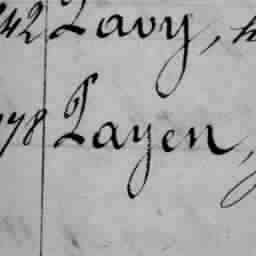 42 Lavy, h
78 Layen,